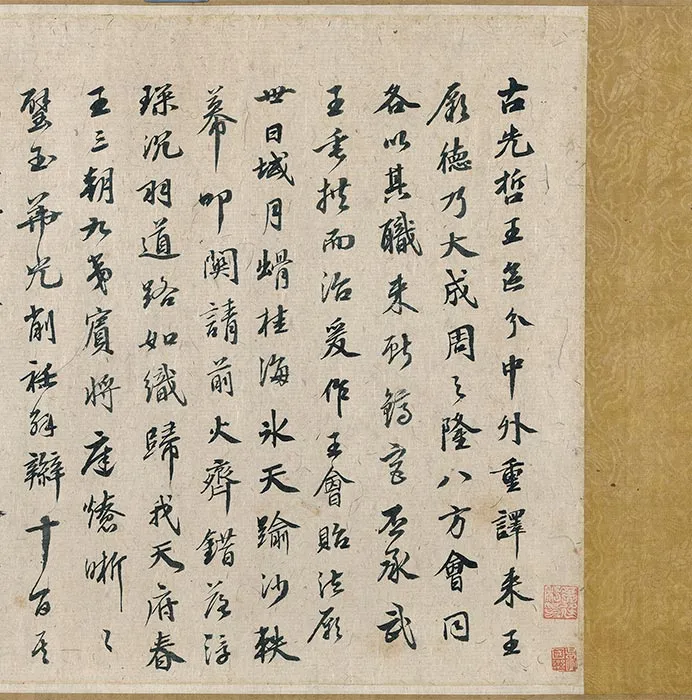 古先哲王分中外重譯来王
厥德乃大成周之隆八方會同
各以其職来鎬丕承武
王垂拱而治爰作王會貽法厥
世日域月桂海氷天踰沙軼
幕叩關請前火齊錯落浮
琛沉羽道路如織歸我天府春
王三朝九賓將庭燎晰〻
璧玉華光削衽解辮十百其